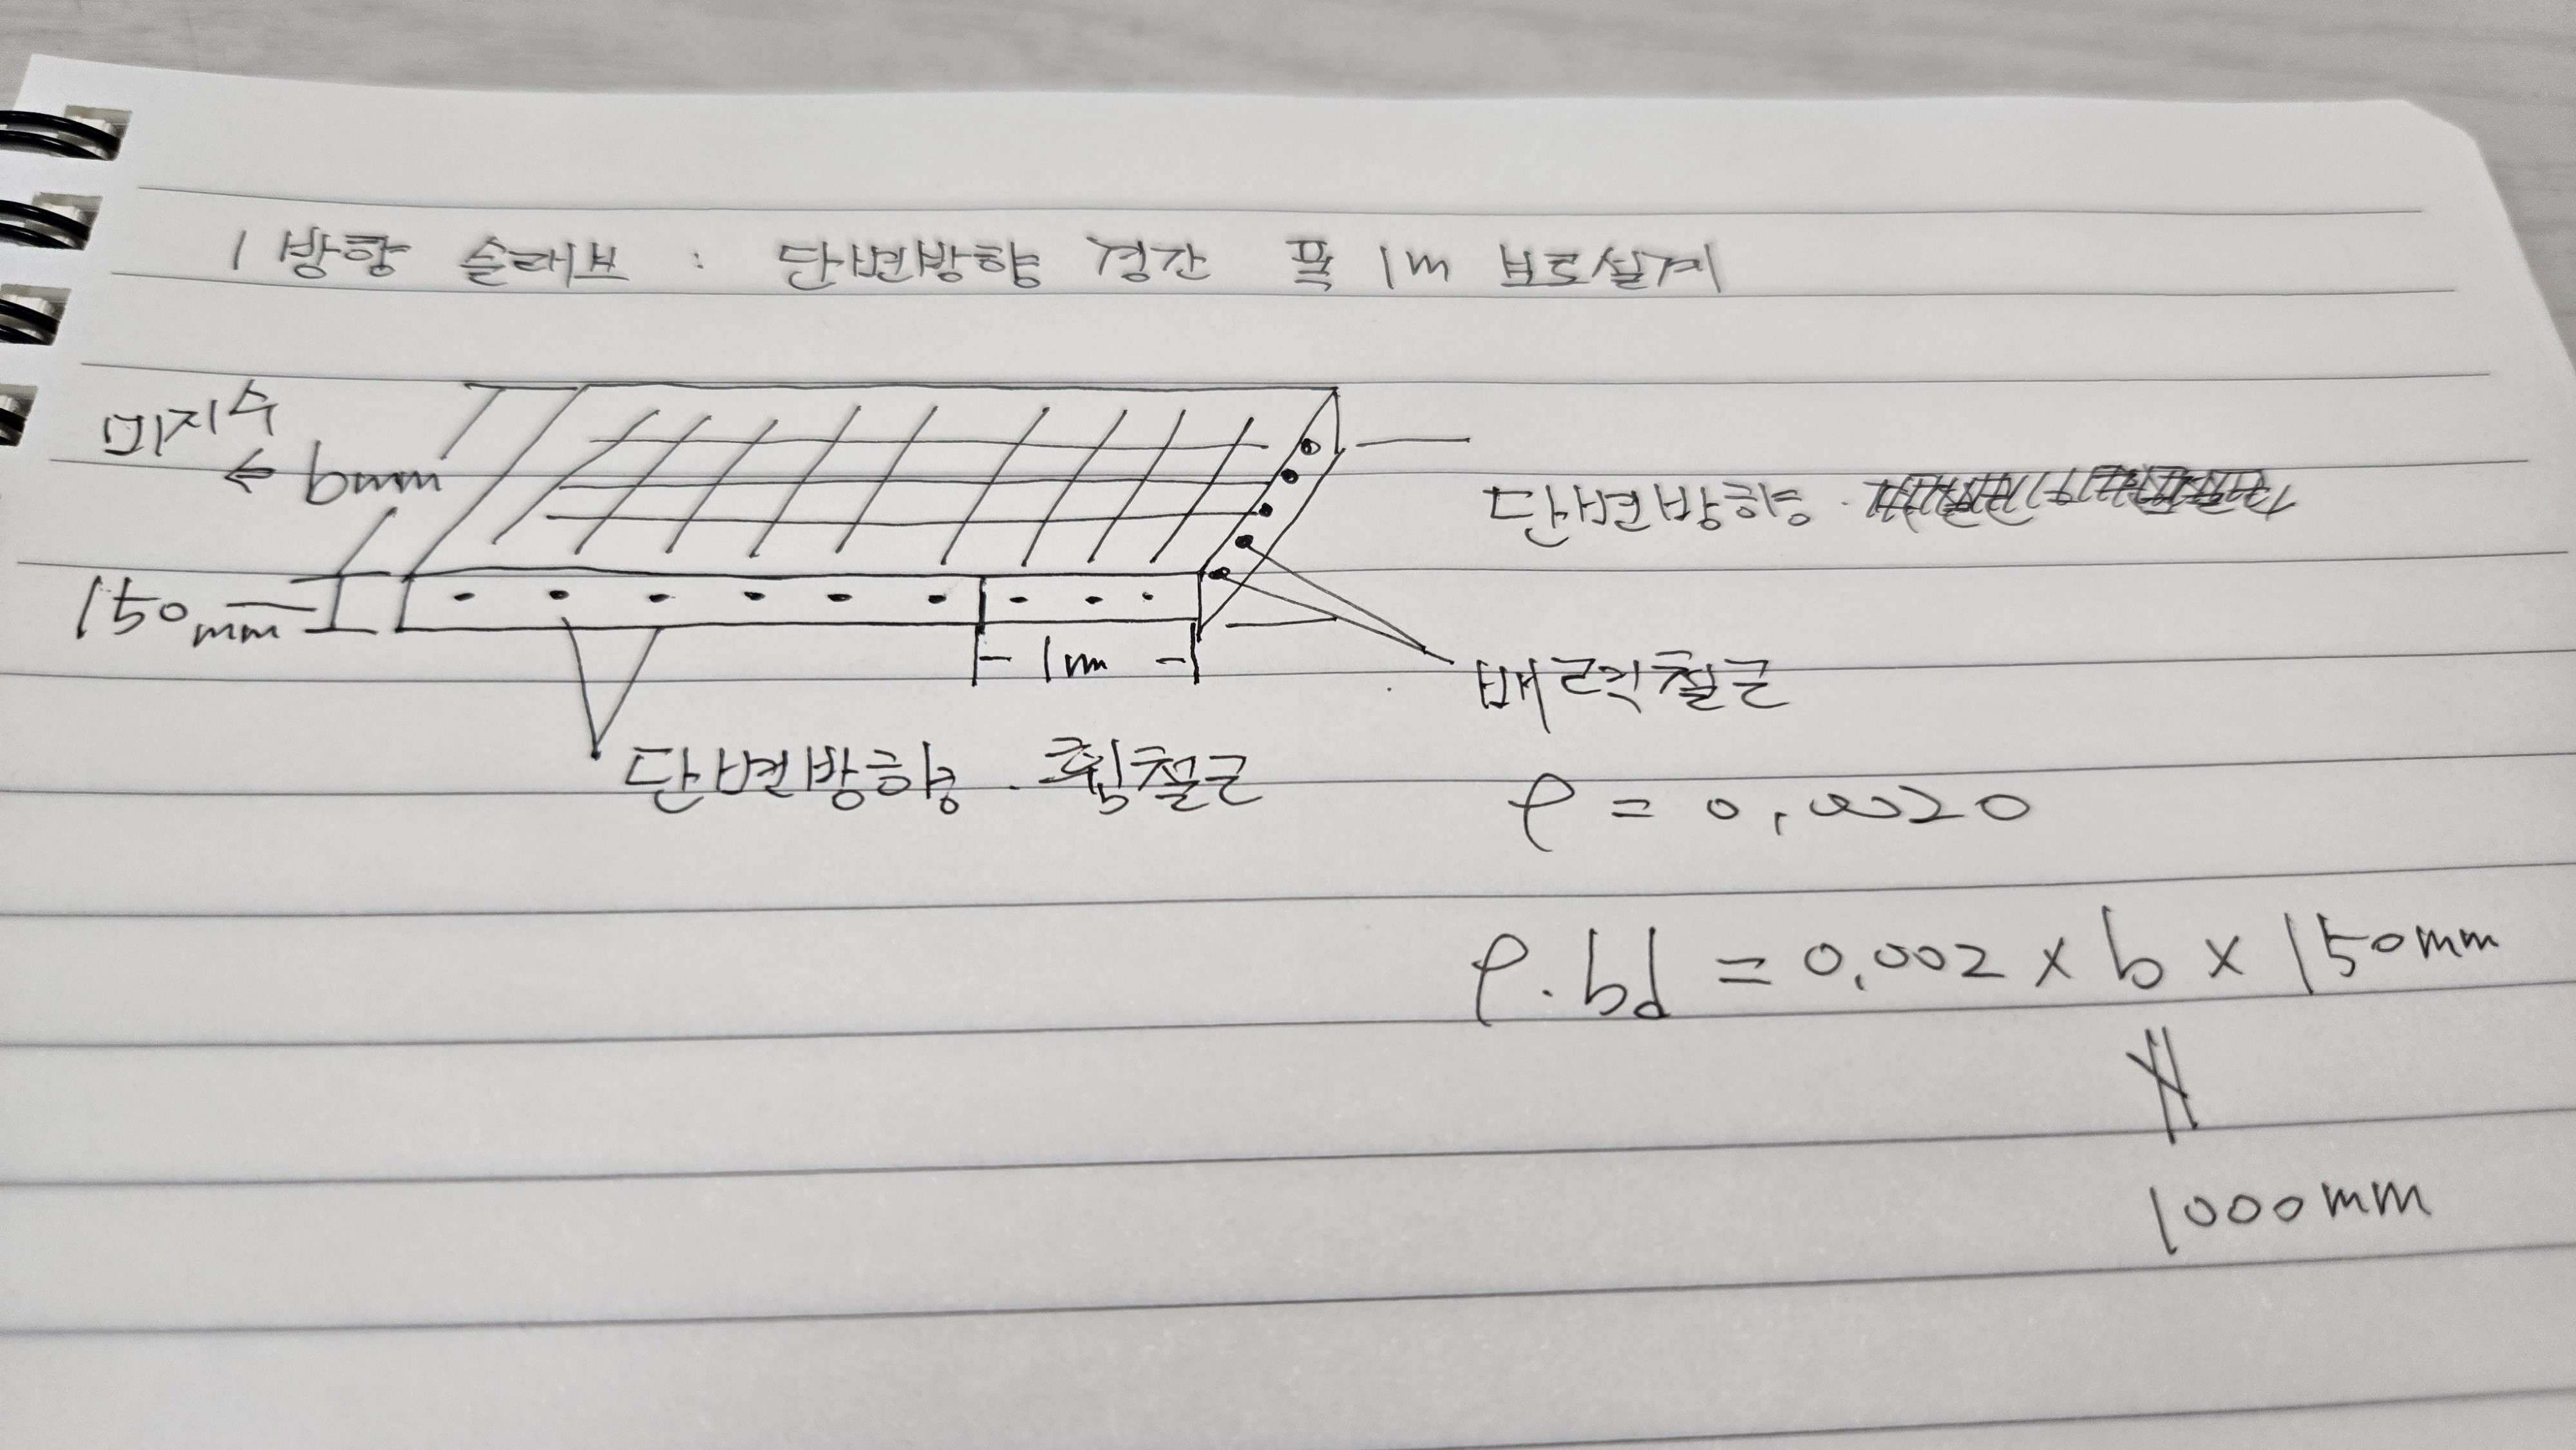 1방향 슬래브 : 단변방향 경간 폭 1m 보로설계
미지수
← bmm
단변방향
150mm
1m
배력철근
단변방향. 휨철근
ρ = 0,0020
ρ.bd = 0.002 x b x 150mm
1000mm